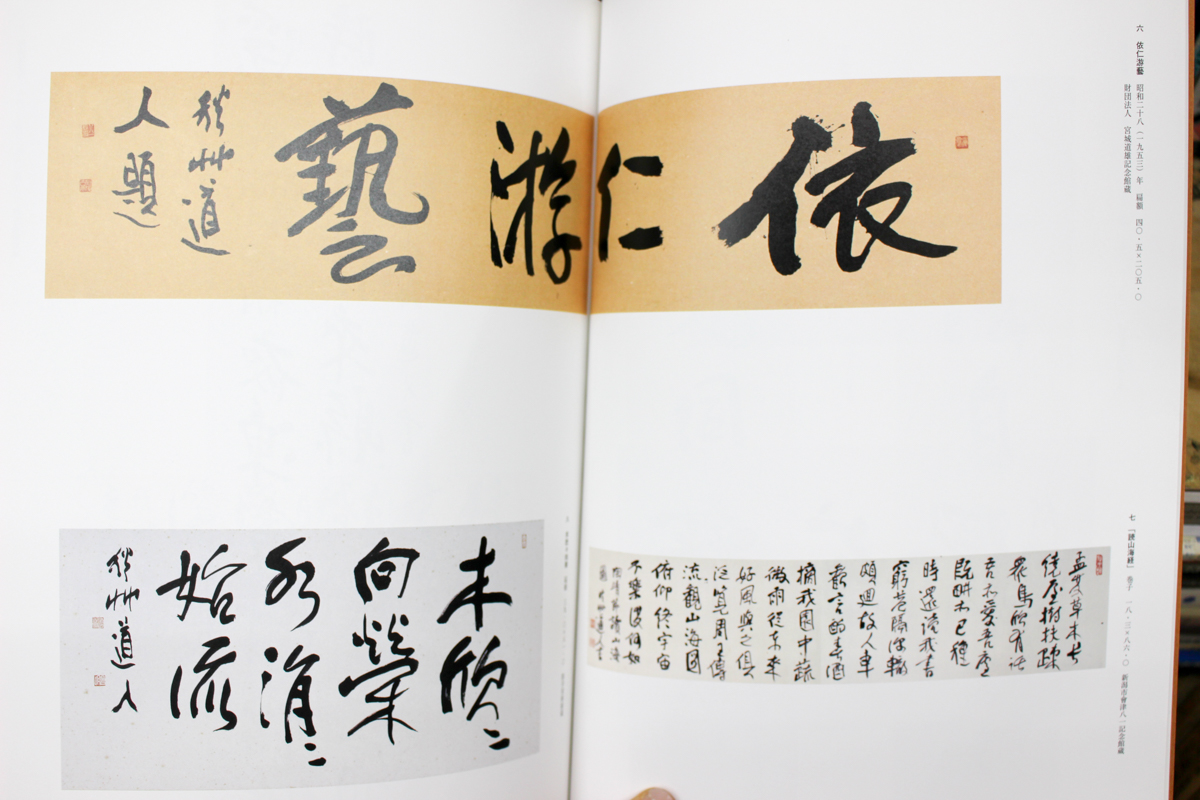 六 依仁游藝 昭和二十八(一九五三)年 扁額 四〇・五×二〇五・〇
財団法人 宮城道雄記念館蔵
依
仁
游
藝
秋艸道
人題
七 「読山海経」 巻子 一八・三×八六・〇 新潟市會津八一記念館蔵
孟夏草木長
繞屋樹扶疎
衆鳥欣有託
吾亦愛吾廬
既耕亦已種
時還讀我書
窮巷隔深轍
頗迴故人車
歡言酌春酒
摘我園中蔬
微雨從東來
好風與之俱
汎覧周王傳
流觀山海圖
俯仰終宇宙
不樂復何如
木欣〻
向榮
水涓〻
始流
秋艸道人